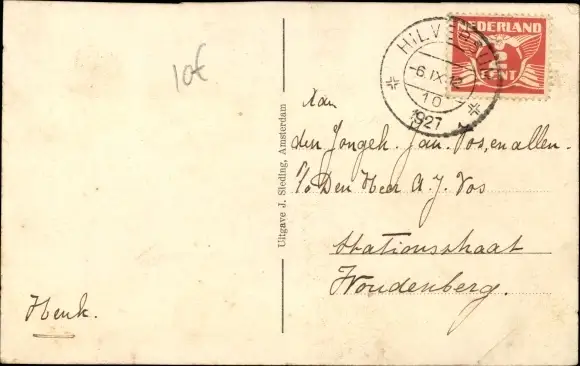 10€
NEDERLAND
2
CENT
HILVERSUM
-6.IX.
10
1927
Aan
den Jongeh. Jan Vos, en allen.
p/o Den Heer A.J. Vos
Stationsstraat
Woudenberg.
Henk.
Uitgave J. Sleding, Amsterdam